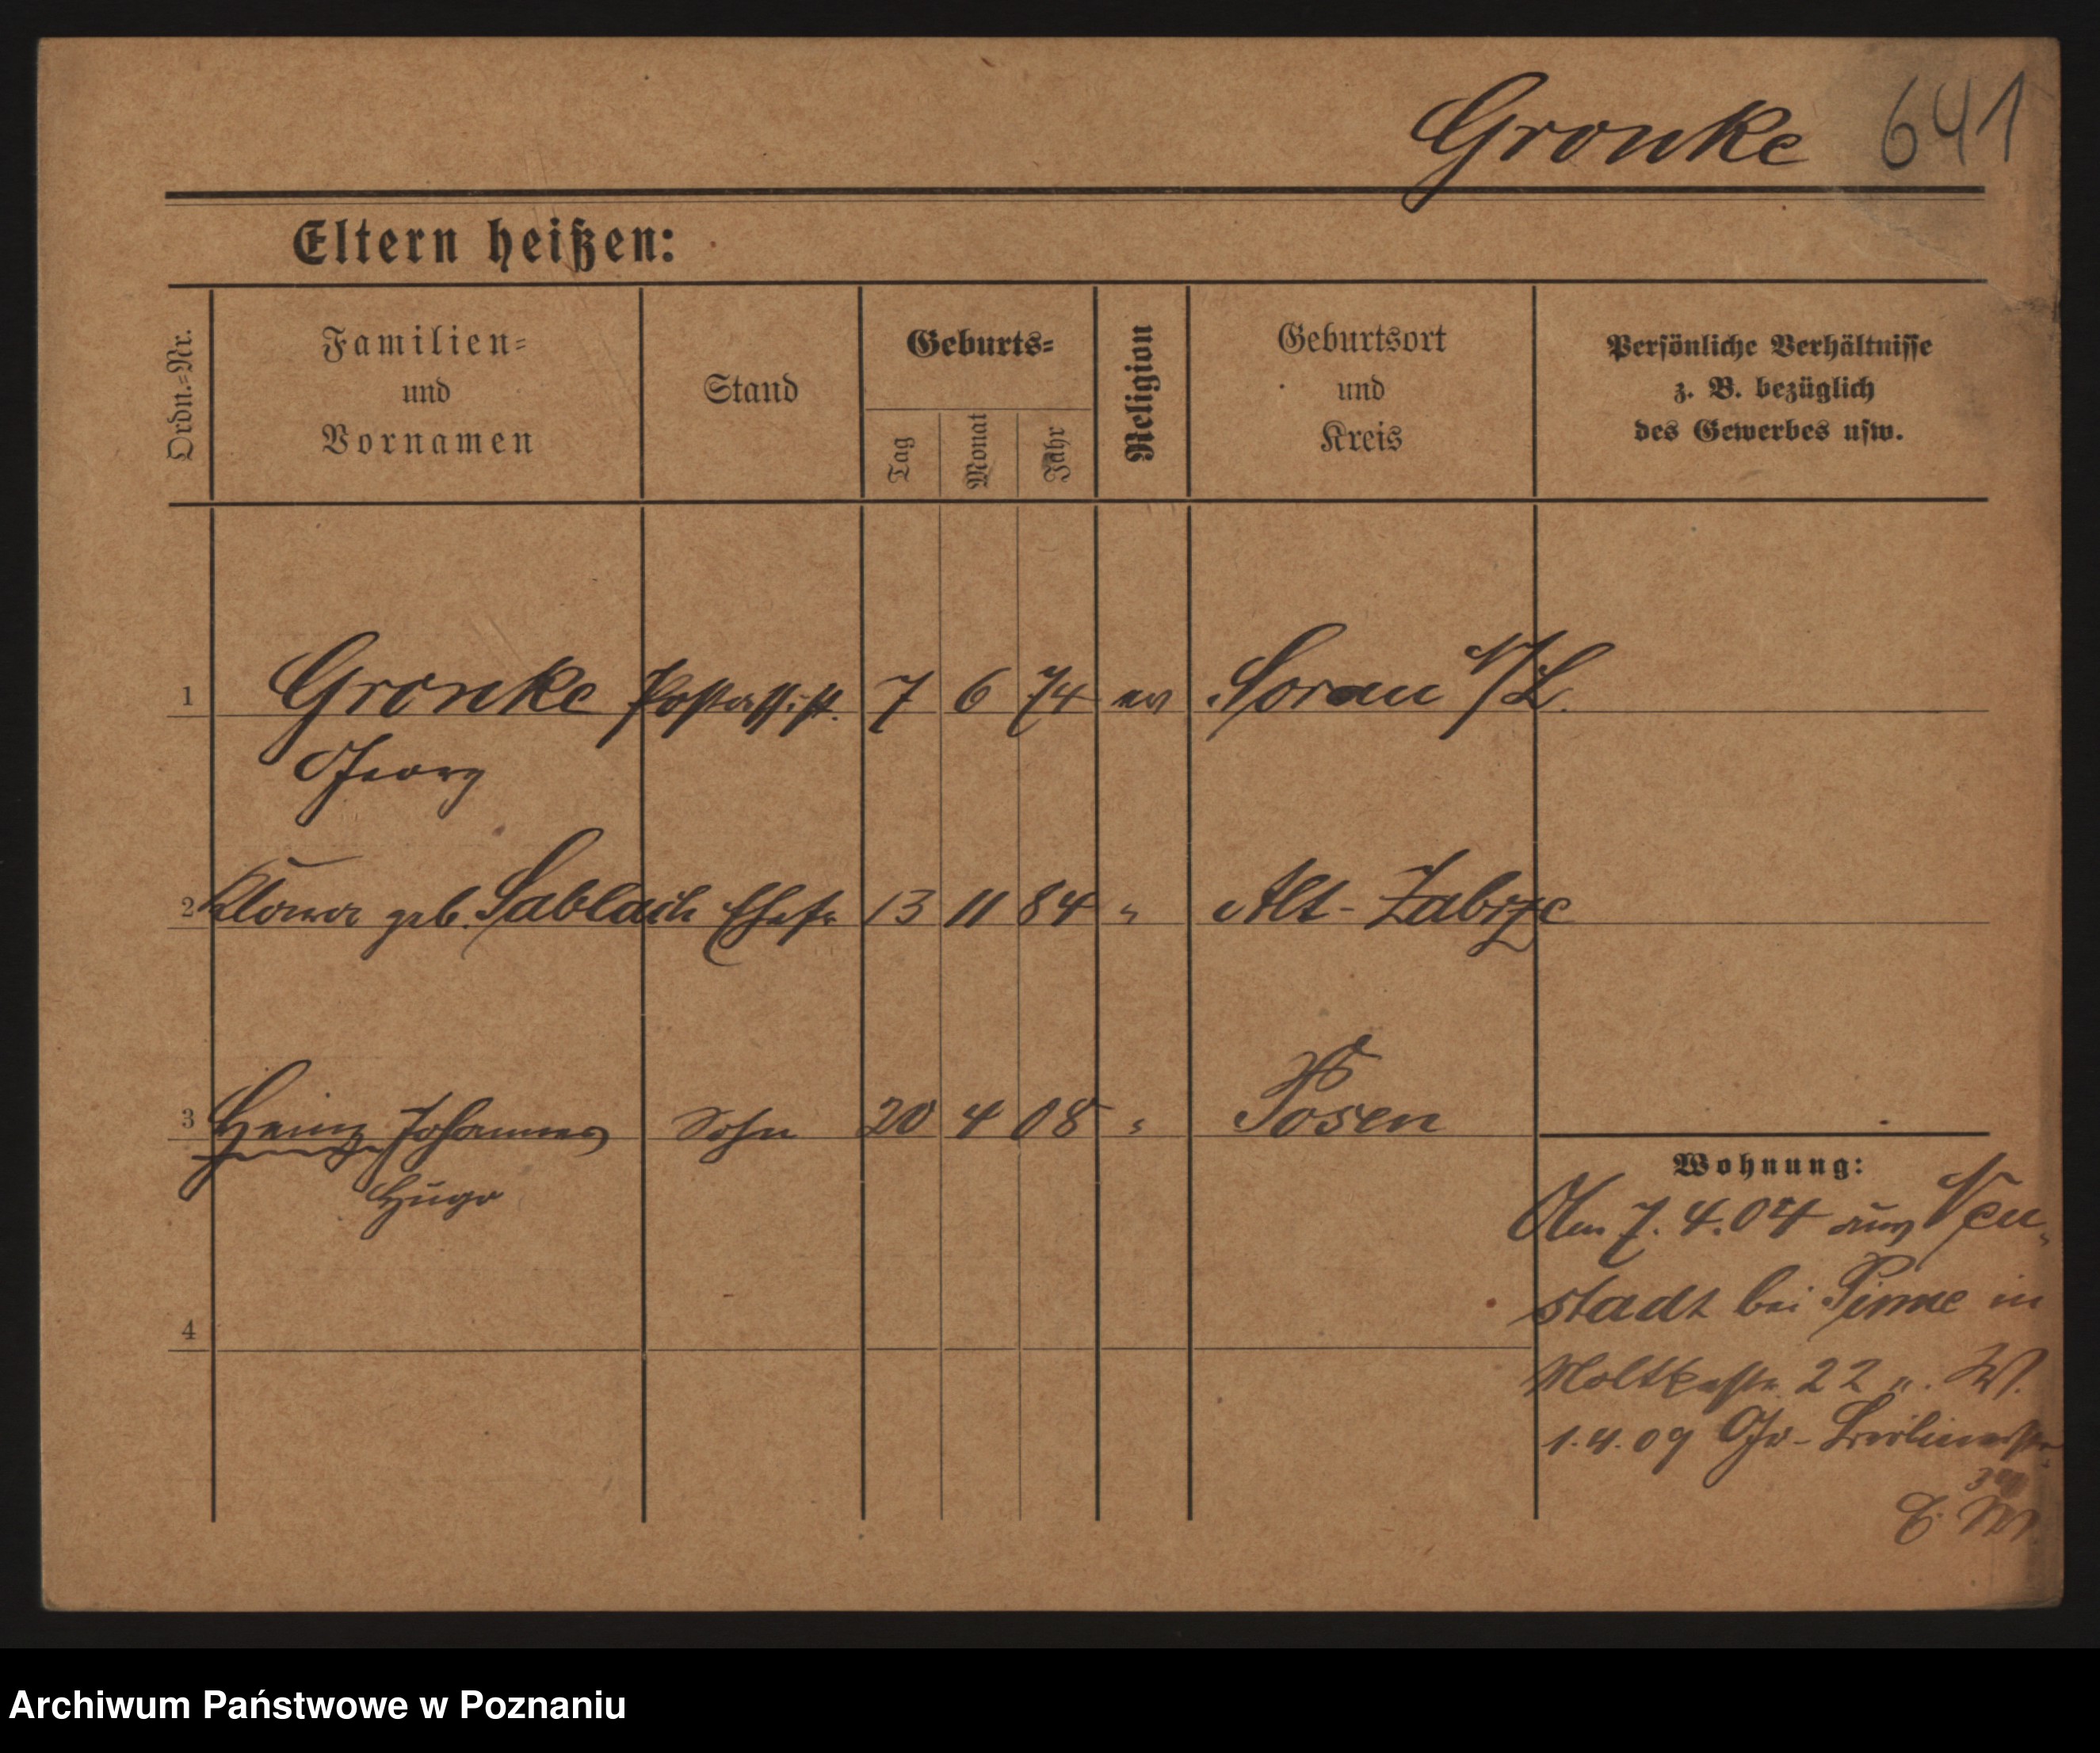 Gronke 641
Eltern heißen:
Ordn.=Nr.
Familien=
und
Vornamen
Stand
Geburts=
Tag
Monat
Jahr
Religion
Geburtsort
und
Kreis
Persönliche Verhältnisse
z. B. bezüglich
des Gewerbes usw.
1 Gronke Postassist. 7 6 74 ev Sorau N/L.
Georg
2 Klara geb. Sablaich Ehefr 13 11 84 " Alt-Zabrze
3 Heinz Johannes Sohn 20 4 08 " Posen
Hugo
4
Wohnung:
Am 7.4.04 aus Neu-
stadt bei Pinne in
Moltkestr. 22 W.
1.4.09 Gr-Berlinerstr.
Archiwum Państwowe w Poznaniu